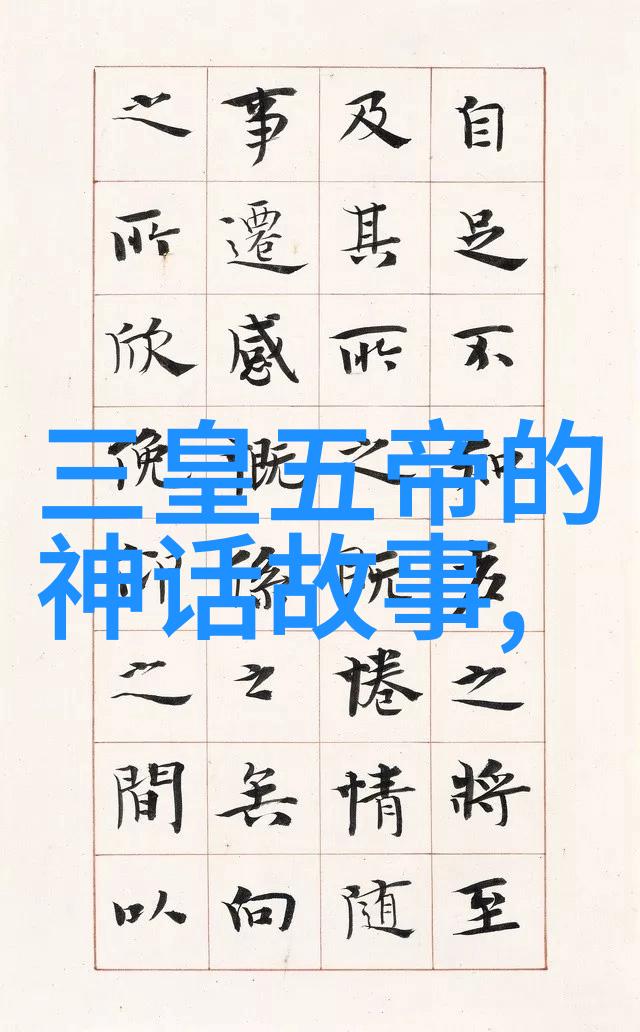 自足不知老之將至
及其所之既惓情隨
事遷感慨係之矣向
之所欣俛仰之間以
三皇五帝的
神话故事,